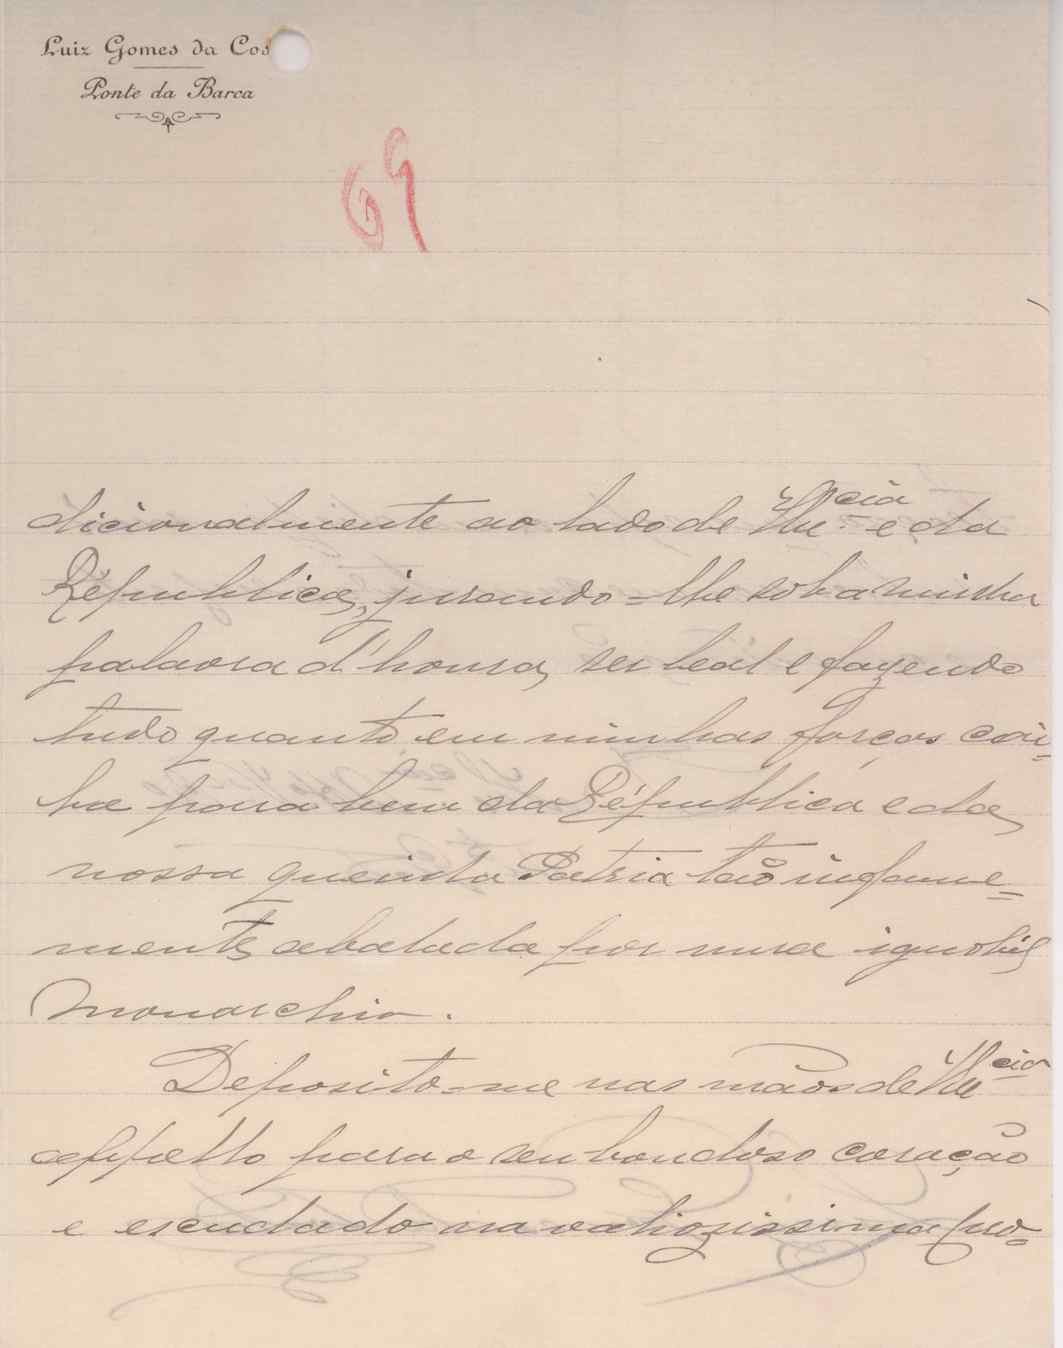 Luiz Gomes da Cos
Ponte da Barca
69
dicionalmente ao lado de V.Ex.cia e da
Républica, jurando-lhe sob a minha
palavra d'honra, ser leal e fazendo
tudo quanto em minhas forças cai=
ba para bem da Républica e da
nossa querida Patria tão infame=
mente abalada por uma ignobil
monarchia.
Deposito-me nas mãos de V.Ex.cia
appello para o seu bondoso coração
e escudado na valiozissima pro=